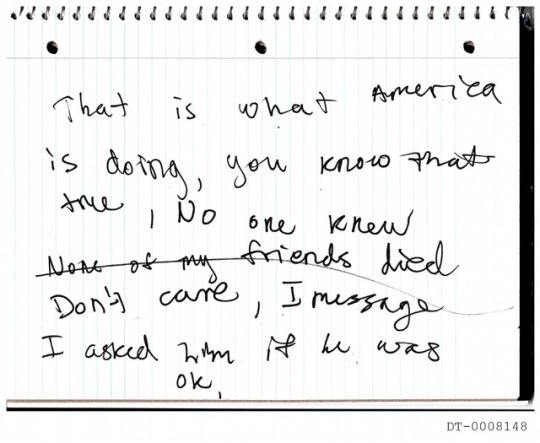 That is what America
is doing, you know that
true, No one knew
None of my friends died
Don't care, I message
I asked him if he was
ok,
DT-0008148